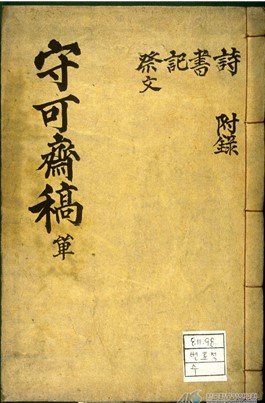 詩書記祭文
附錄
守可齋稿
單
811.98
수